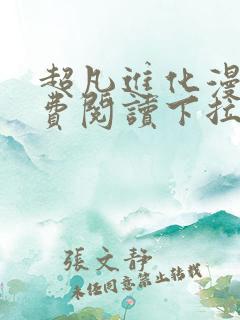 超凡進化漫
費閱讀下拉
張文静
未任同意禁止转载